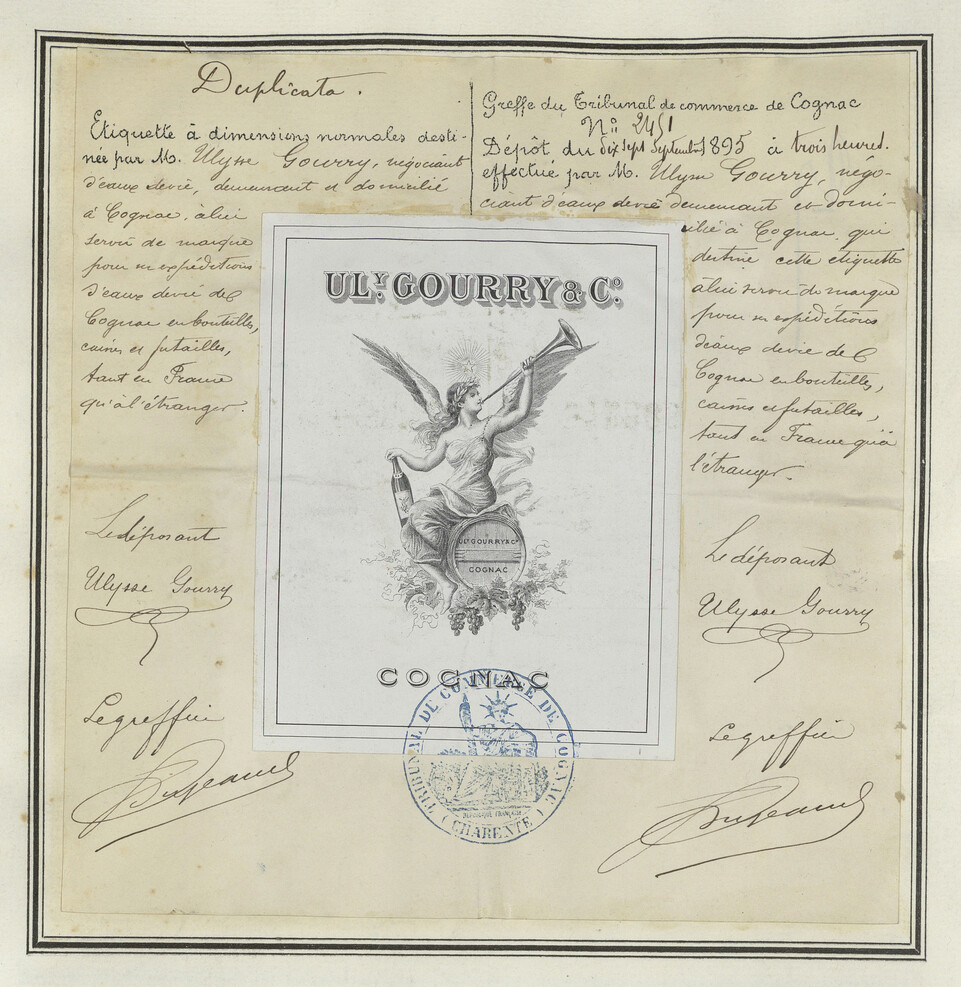 Duplicata.
Etiquette à dimensions normales desti-
née par M. Ulysse Gourry, négociant
d'eaux devie, demeurant et domicilié
à Cognac, à lui
servir de marque
pour ses expéditions
d'eaux devie de
Cognac en bouteilles,
caisses et futailles,
tant en France
qu'à l'étranger.
Le déposant
Ulysse Gourry
Le greffier
Greffe du Tribunal de commerce de Cognac
N° 2451
Dépôt du dix sept Septembre 1895 à trois heures.
effectué par M. Ulysse Gourry, négo-
ciant d'eaux devie demeurant et domi-
cilié à Cognac, qui
destine cette etiquette
à lui servir de marque
pour ses expéditions
d'eaux devie de
Cognac en bouteilles,
caisses et futailles,
tant en France qu'à
l'étranger.
Le déposant
Ulysse Gourry
Le greffier
ULY. GOURRY & Co.
ULY. GOURRY & Co
COGNAC
COGNAC
TRIBUNAL DE COMMERCE DE COGNAC
(CHARENTE)
REPUBLIQUE FRANÇAISE